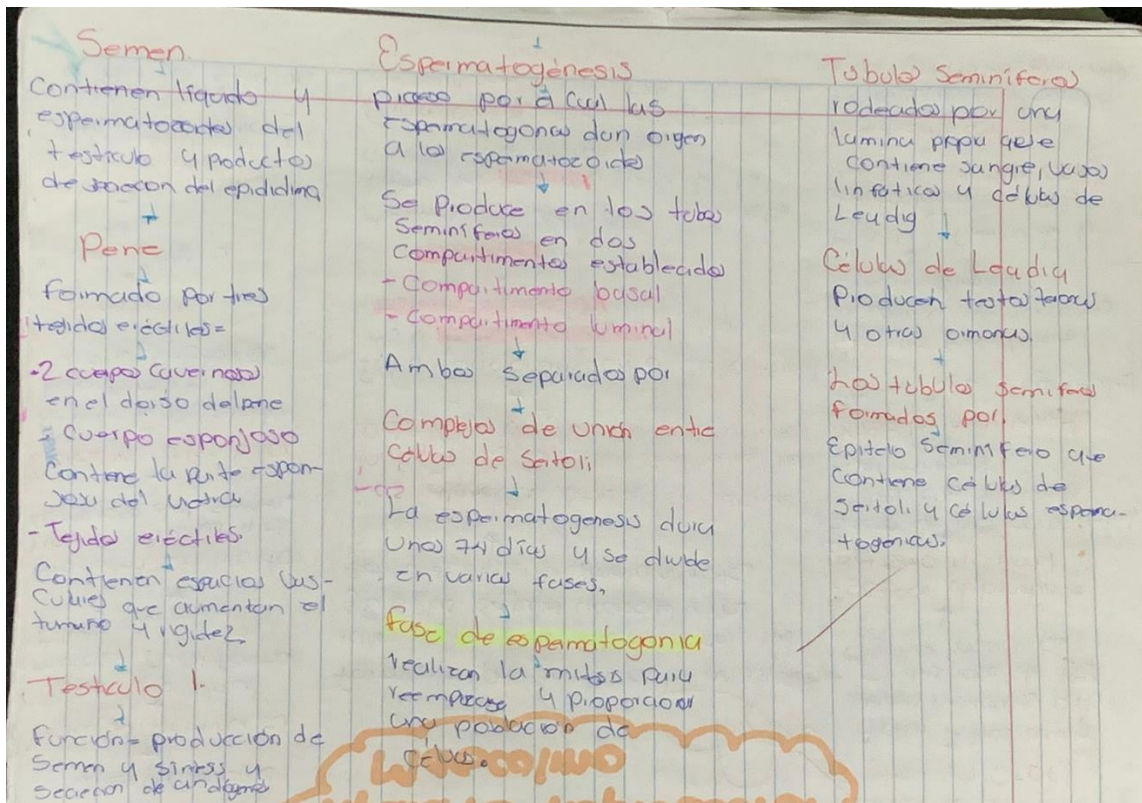 Semen.
Contienen líquido y
espermatozoites del
testiculo y productos
de secrecon del epididima
Pene
formado por tres
tejidos eréctiles=
-2 cuerpos cavernosos
en el dorso del pene
- Cuerpo esponjoso
Contiene la parte espon-
josa del
- Tejidos eréctiles.
Contienen espacios vas-
culares que aumentan el
tamaño y rigidez
Testiculo 1.
función= producción de
semen y sintess y
secrecion de
Espermatogénesis
proceso por el cual las
espermatogonas dan origen
a los espermatozoides
Se produce en los tubos
Seminiferos en dos
Compartimentos establecidos
- Compartimento basal
- Compartimento luminal
Ambos separados por
Complejos de union entre
Células de Sertoli
La espermatogenesis dura
unos 74 días y se divide
en varias fases.
fase de espermatogonia
realizan la mitosis para
y proporcionar
una poblacion de
células.
Tubulos Seminiferos
rodeados por una
lamina propia que
contiene sangre, vasos
linfáticos y células de
Leudig
Células de Leudig
Producen
y otras ormonas.
Los tubulos
formados por
Epitelo Seminifero que
Contiene células de
Sertoli y células esperma-
togenicas.